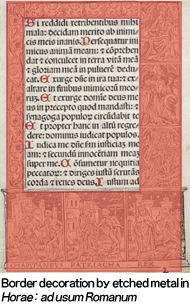 Si reddidi retribuentibus mihi
mala: decidam merito ab inimi-
cis meis inanis. Persequatur ini-
micus animā meam: & cōprehen-
dat & conculcet in terra vitā meā
& gloriam meā in puluerē dedu-
cat. Exurge dn̄e in ira tua: & ex-
altare in finibus inimicorū meo-
rū. Et exurge domine deus me-
us in precepto quod mandasti: &
synagoga populorū circūdabit te
Et propter hanc in altū regre-
dere: dominus iudicat populos.
Iudica me dn̄e secundum iusticiā meā:
am: & secundū innocētiam meā
super me. Cōsumetur nequitia
peccatorū: & diriges iustū scrutās
corda & renes deus. Iustum ad
Border decoration by etched metal in
Horae: ad usum Romanum